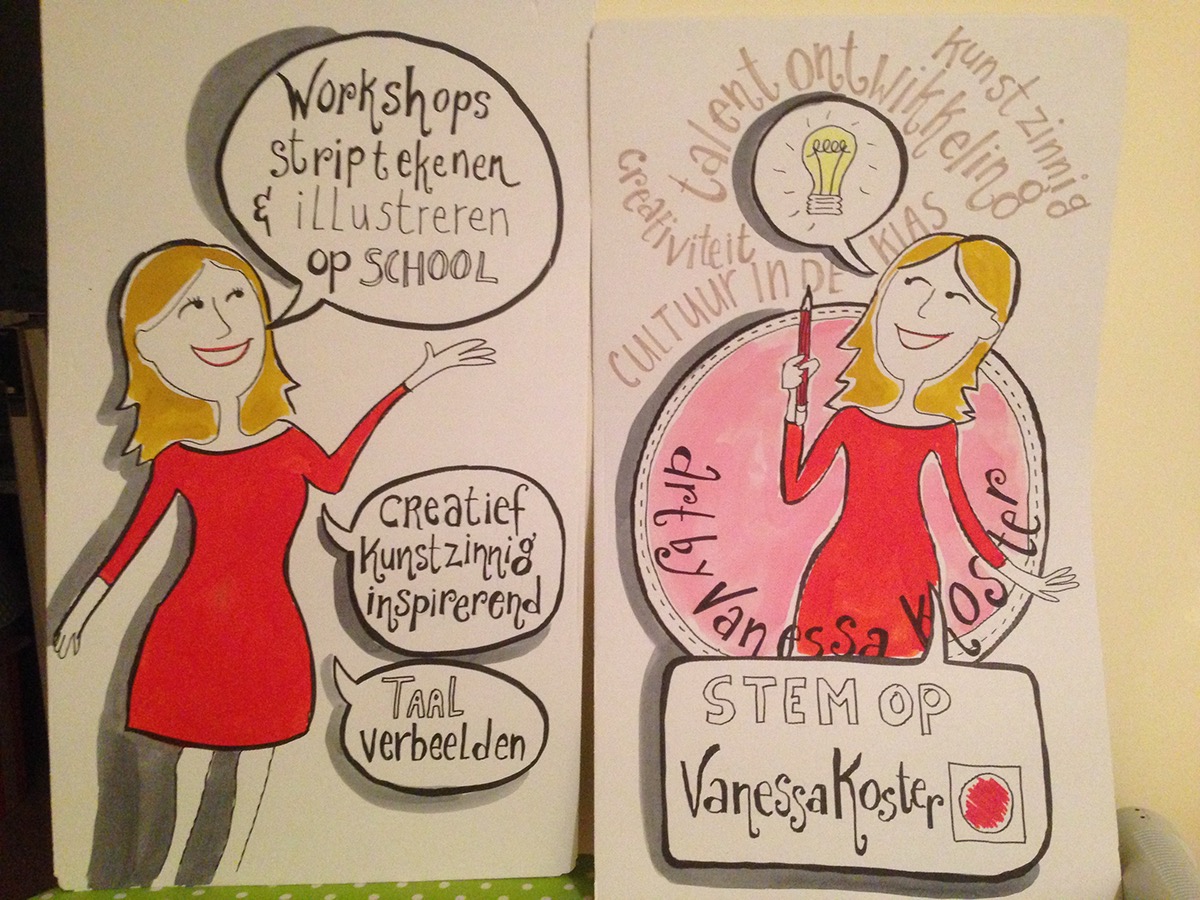 Workshops
striptekenen
& illustreren
op SCHOOL
creatief
kunstzinnig
inspirerend
TAAL
verbeelden
kunstzinnig
talent ontwikkeling
creativiteit
CULTUUR IN DE KLAS
art by Vanessa Koster
STEM OP
Vanessa Koster